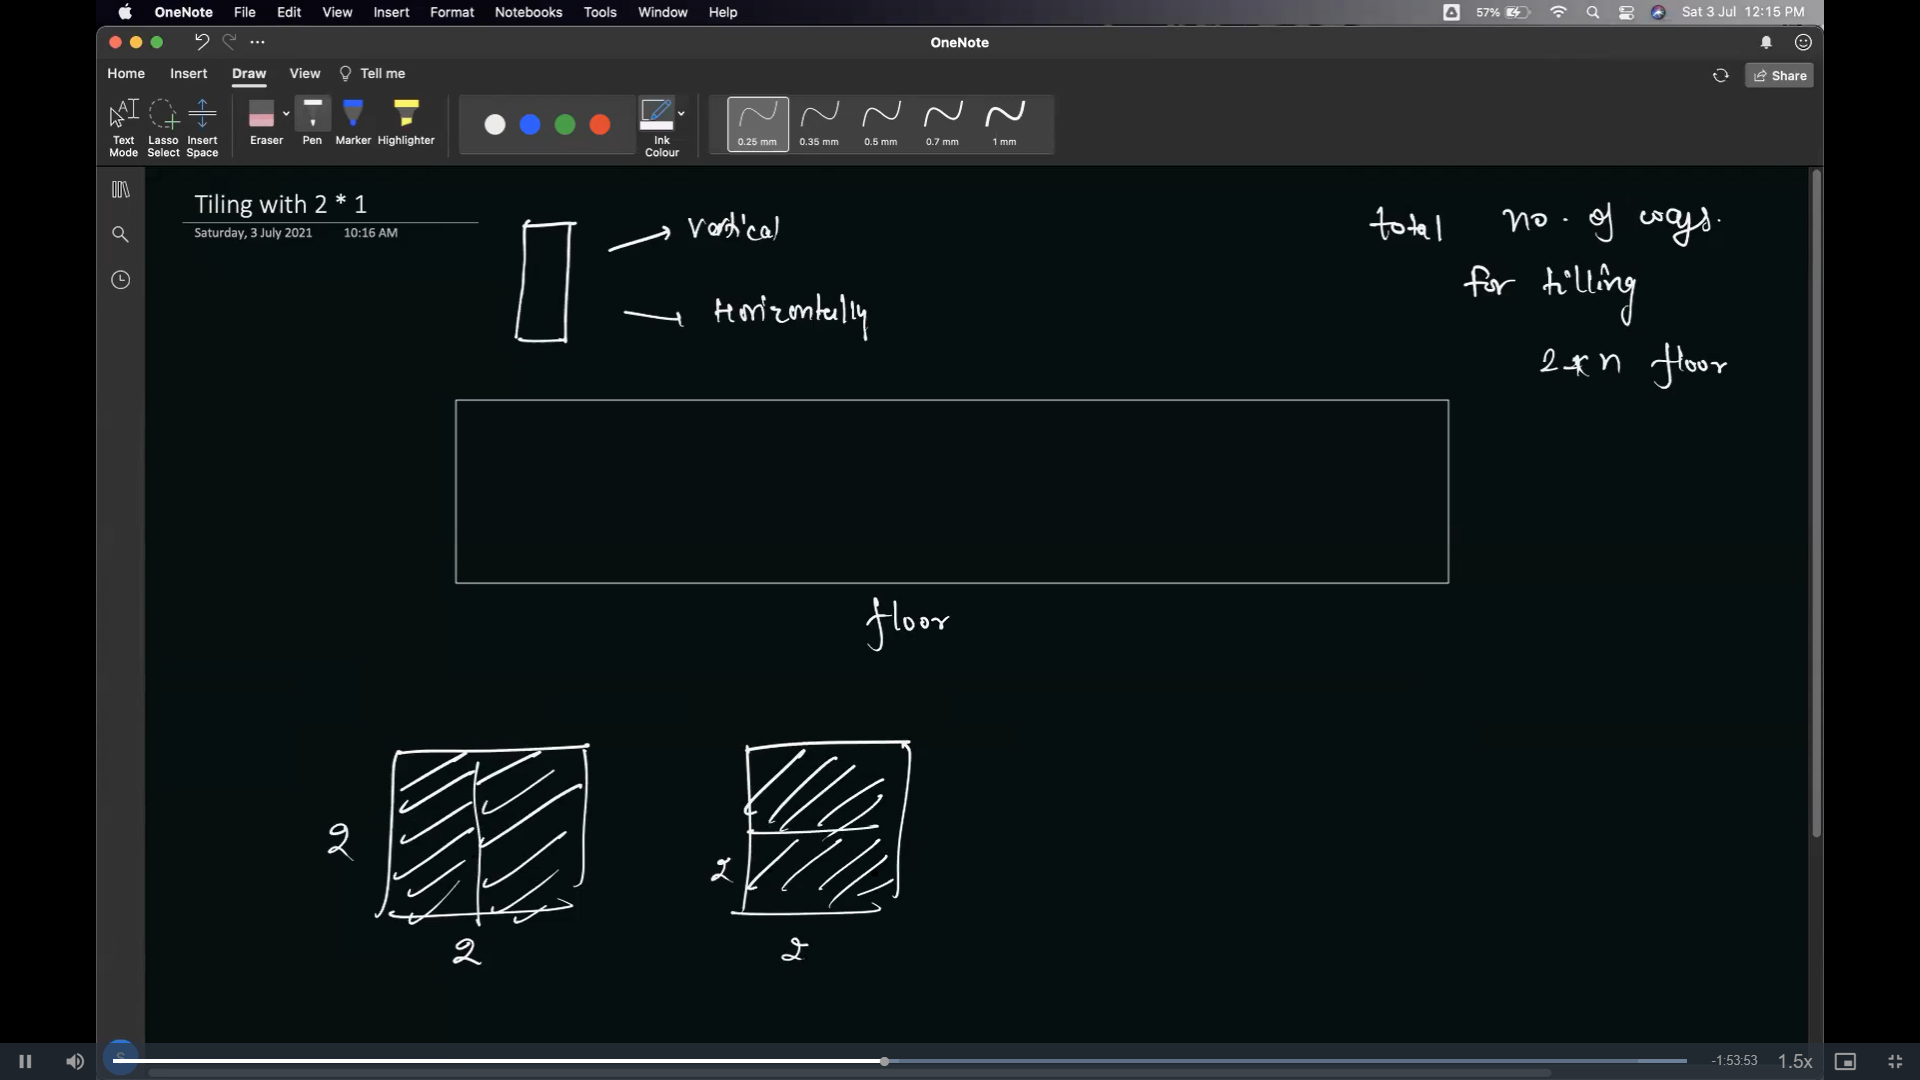 OneNote File Edit View Insert Format Notebooks Tools Window Help 57% Sat 3 Jul 12:15 PM
OneNote
Home Insert Draw View Tell me Share
Text Mode Lasso Select Insert Space Eraser Pen Marker Highlighter Ink Colour 0.25 mm 0.35 mm 0.5 mm 0.7 mm 1 mm
Tiling with 2 * 1
Saturday, 3 July 2021 10:16 AM
vertical
Horizontally
total no. of ways.
for tilling
2 * n floor
floor
2
2
2
2
-1:53:53 1.5x